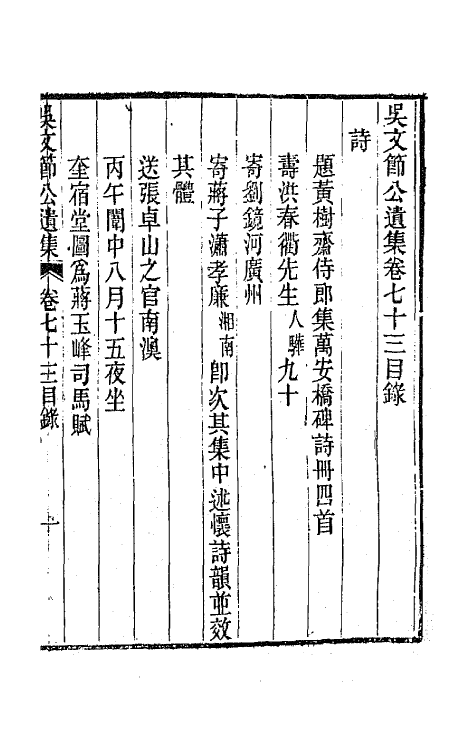 吳文節公遺集卷七十三目錄
詩
題黃樹齋侍郎集萬安橋碑詩冊四首
壽洪春衢先生人驊九十
寄劉鏡河廣州
寄蔣子瀟孝廉湘南卽次其集中述懷詩韻並效
其體
送張卓山之官南澳
丙午闈中八月十五夜坐
奎宿堂圖爲蔣玉峰司馬賦
吳文節公遺集 卷七十三目錄 一